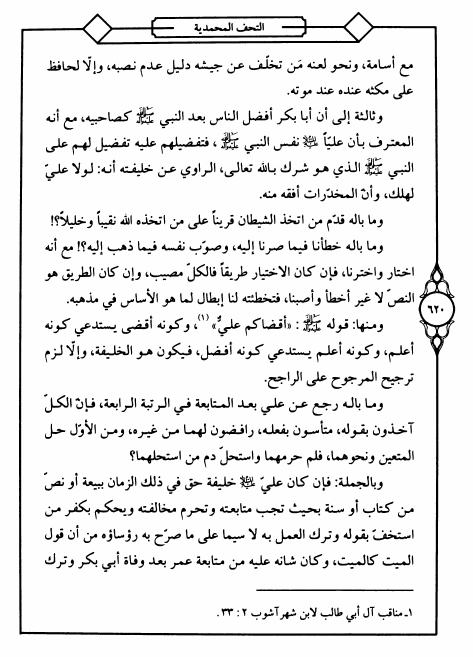 التحف المحمدية
مع أسامة، ونحو لعنه مَن تخلّف عن جيشه دليل عدم نصبه، وإلّا لحافظ
على مكثه عنده عند موته.
وثالثة إلى أن أبا بكر أفضل الناس بعد النبي ﷺ كصاحبيه، مع أنه
المعترف بأن عليّاً نفس النبي ﷺ، فتفضيلهم عليه تفضيل لهم على
النبي ﷺ الذي هو شرك بـالله تعالى، الراوي عن خليفته أنه: لـولا عليّ
لهلك، وأنّ المخدّرات أفقه منه.
وما باله قدّم من اتخذ الشيطان قريناً على من اتخذه الله نقيباً وخليلاً؟!
وما باله خطأنا فيما صرنا إليه، وصوّب نفسه فيما ذهب إليه؟! مع أنه
اختار واخترنا، فإن كان الاختيار طريقاً فالكلّ مصيب، وإن كان الطريق هو
النصّ لا غير أخطأ وأصبنا، فتخطئته لنا إبطال لما هو الأساس في مذهبه.
ومنها: قوله ﷺ: «أقضاكم عليٌّ» (١)، وكونه أقضى يستدعي كونه
أعلم، وكونه أعلم يستدعي كونه أفضل، فيكون هو الخليفة، وإلّا لـزم
ترجيح المرجوح على الراجح.
وما بالـه رجع عن علي بعد المتابعة في الرتبة الرابعة، فإنّ الكلّ
آخذون بقوله، متأسون بفعله، رافضون لهما من غيره، ومن الأوّل حل
المتعين ونحوهما، فلم حرمهما واستحلّ دم من استحلهما؟
وبالجملة: فإن كان عليّ خليفة حق في ذلك الزمان ببيعة أو نصّ
من كتاب أو سنة بحيث تجب متابعته وتحرم مخالفته ويحكم بكفر من
استخفّ بقوله وترك العمل به لا سيما على ما صرّح به رؤساؤه من أن قول
الميت كالميت، وكان شانه عليه من متابعة عمر بعد وفاة أبي بكر وترك
٦٢٠
١ـ مناقب آل أبي طالب لابن شهر آشوب ٢ : ٣٣ .